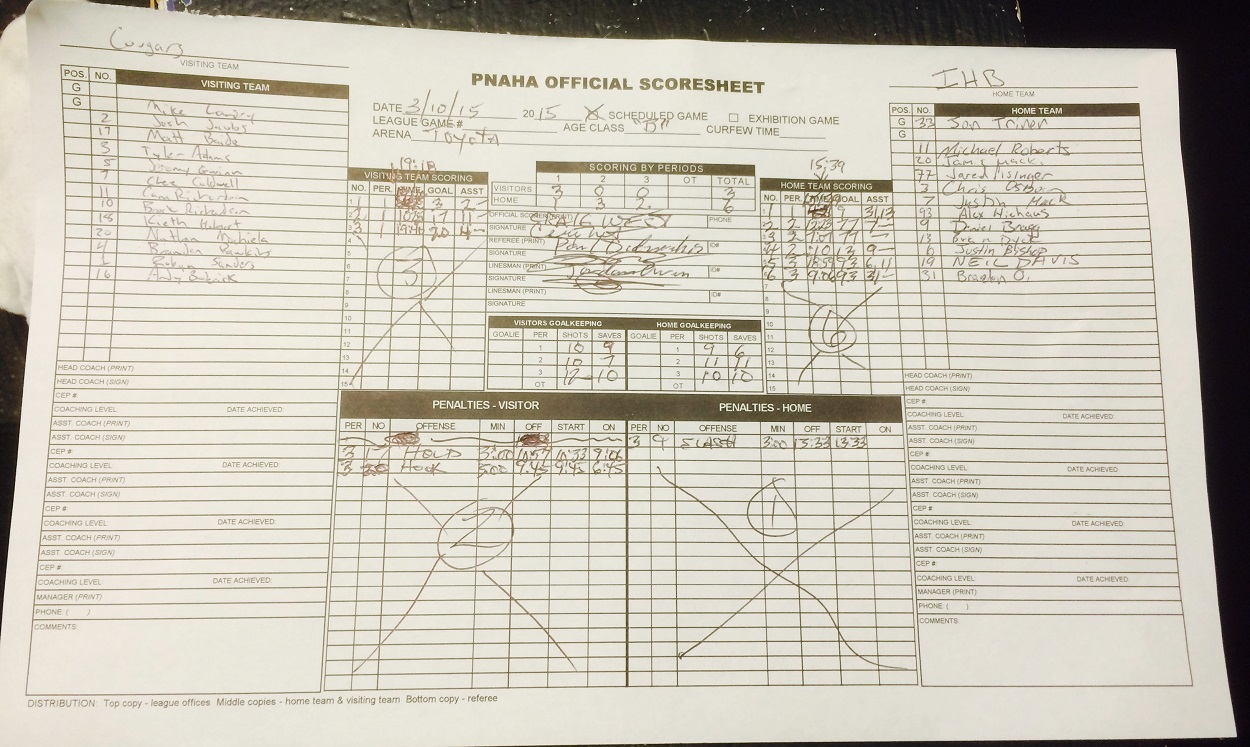 Cougars
VISITING TEAM
PNAHA OFFICIAL SCORESHEET
IHB
HOME TEAM
DATE 3/10/15 2015 X SCHEDULED GAME EXHIBITION GAME
LEAGUE GAME# AGE CLASS "B" CURFEW TIME
ARENA TOYOTA
POS. NO. VISITING TEAM
G
G
Mike
2 Josh
17 Matt
3 Tyler Adams
5
7 Caldwell
11 Richardson
10 Richardson
18 Keith
20 Nathan
4
Sanders
16 Andy
HEAD COACH (PRINT)
HEAD COACH (SIGN)
CEP #
COACHING LEVEL: DATE ACHIEVED:
ASST. COACH (PRINT)
ASST. COACH (SIGN)
CEP #
COACHING LEVEL: DATE ACHIEVED:
ASST. COACH (PRINT)
ASST. COACH (SIGN)
CEP #
COACHING LEVEL: DATE ACHIEVED:
ASST. COACH (PRINT)
ASST. COACH (SIGN)
CEP #
COACHING LEVEL DATE ACHIEVED:
MANAGER (PRINT)
PHONE ( )
COMMENTS:
19:18
VISITING TEAM SCORING
NO. PER. TIME GOAL ASST
1 1 3 2 -
2 1 17 11 -
3 1 20 4 -
4
5
6
7
8
9
10
11
12
13
14
15
3
SCORING BY PERIODS
1 2 3 OT TOTAL
VISITORS 3 0 0 3
HOME 1 3 2 6
OFFICIAL SCORER (PRINT) CRAIG WEST PHONE
SIGNATURE
REFEREE (PRINT) Paul ID#
SIGNATURE
LINESMAN (PRINT) ID#
SIGNATURE
LINESMAN (PRINT) ID#
SIGNATURE
VISITORS GOALKEEPING HOME GOALKEEPING
GOALIE PER SHOTS SAVES GOALIE PER SHOTS SAVES
1 10 9 1 9 6
2 10 7 2 11 11
3 12 10 3 10 10
OT OT
15:39
HOME TEAM SCORING
NO. PER. TIME GOAL ASST
1 1 31 13
2 2 77 7 -
3 2 1:07 77 -
4 2 13 9 -
5 3 18:59 93 6,11
6 3 9:06 93 31 -
7
8
9
10
11
12
13
14
15
6
POS. NO. HOME TEAM
G 33 Jon Triner
G
11 Michael Roberts
20 Jamis Mack
77 Jared
3 Chris Osborn
7 Justin Heck
93 Alex Nichaus
9 Daniel Bragg
13
6 Justin Bishop
19 NEIL DAVIS
31 Braedon O.
HEAD COACH (PRINT)
HEAD COACH (SIGN)
CEP #:
COACHING LEVEL: DATE ACHIEVED:
ASST. COACH (PRINT)
ASST. COACH (SIGN)
CEP #:
COACHING LEVEL: DATE ACHIEVED:
ASST. COACH (PRINT)
ASST. COACH (SIGN)
CEP #
COACHING LEVEL: DATE ACHIEVED:
ASST. COACH (PRINT)
ASST. COACH (SIGN)
CEP #:
COACHING LEVEL DATE ACHIEVED:
MANAGER (PRINT)
PHONE ( )
COMMENTS:
PENALTIES - VISITOR PENALTIES - HOME
PER NO OFFENSE MIN OFF START ON PER NO OFFENSE MIN OFF START ON
3 9 SLASH 3:00 13:33 13:33
3 17 HOLD 3:00 10:57 10:33 9:06
3 HOOK 3:00 9:45 9:45 6:45
2
1
DISTRIBUTION Top copy - league offices Middle copies - home team & visiting team Bottom copy - referee